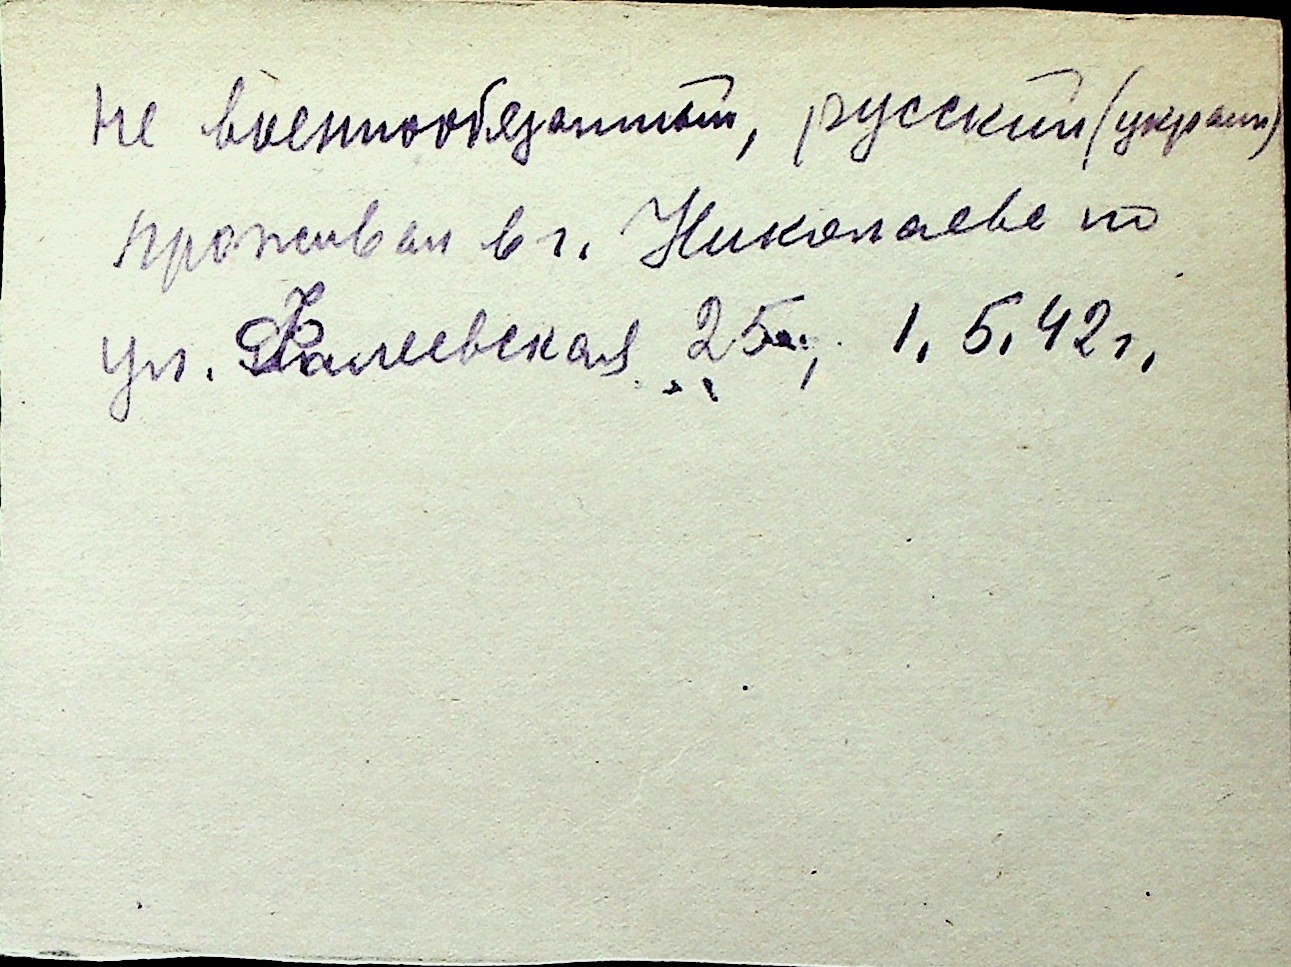 не военнообязанный, русский (украин)
проживал в г. Николаеве по
ул. Фалеевская 25, 1.5.42г.